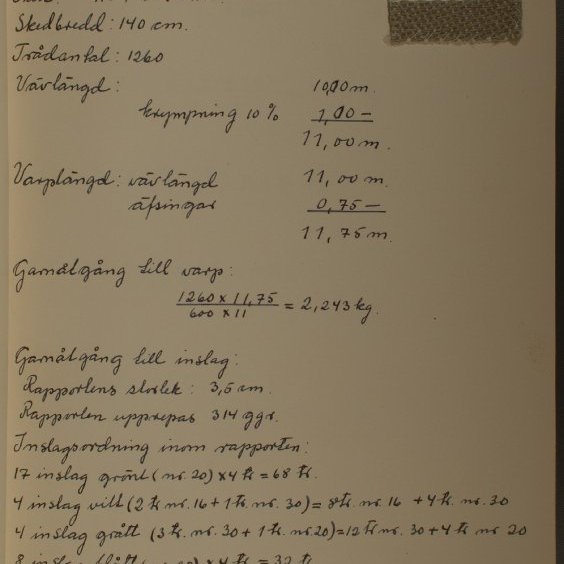 Skedbredd: 140 cm.
Trådantal: 1260
Vävlängd: 10,00 m.
krympning 10 % 1,00 –
11,00 m.
Varplängd: vävlängd 11,00 m.
äfsingar 0,75 –
11,75 m.
Garnåtgång till varp:
1260 x 11,75
600 x 11 = 2,243 kg.
Garnåtgång till inslag:
Rapportens storlek: 3,5 cm.
Rapporten upprepas 314 ggr.
Inslagsordning inom rapporten:
17 inslag grönt (nr. 20) x 4 tr = 68 tr.
4 inslag vitt (2 tr nr. 16 + 1 tr. nr. 30) = 8 tr. nr. 16 + 4 tr. nr. 30
4 inslag grått (3 tr. nr. 30 + 1 tr. nr. 20) = 12 tr nr. 30 + 4 tr nr 20